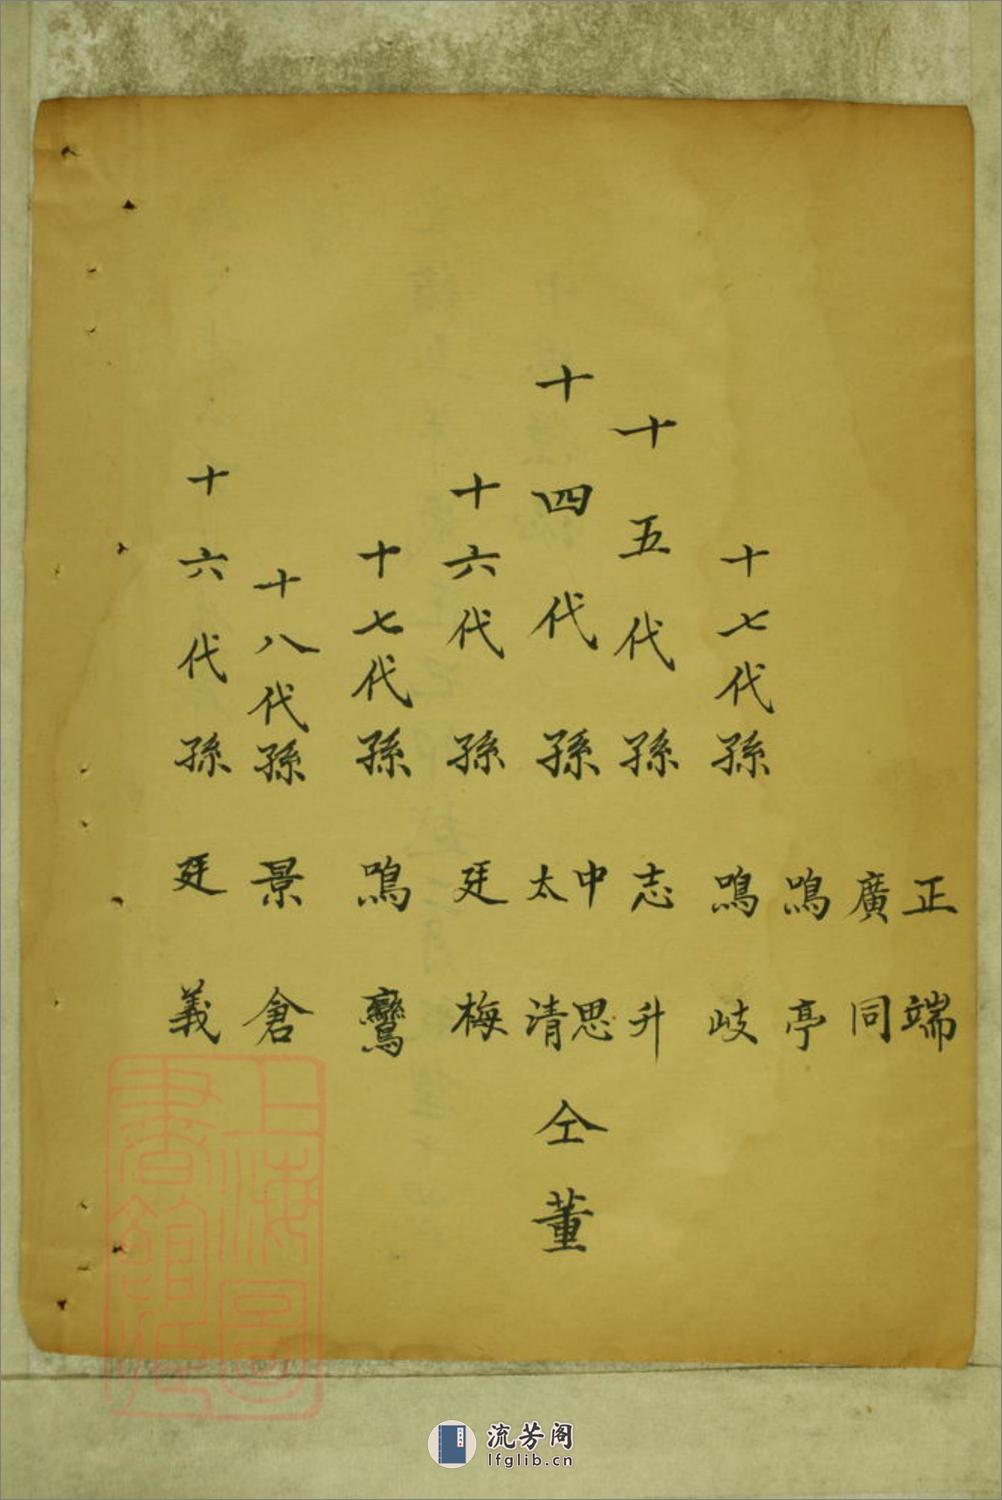 正端
廣同
鳴亭
十七代孫 鳴岐
十五代孫 志升
十四代孫 中思 太清 仝董
十六代孫 廷梅
十七代孫 鳴鸞
十八代孫 景倉
十六代孫 廷義
上海圖
書館藏
流芳阁
lfglib.cn